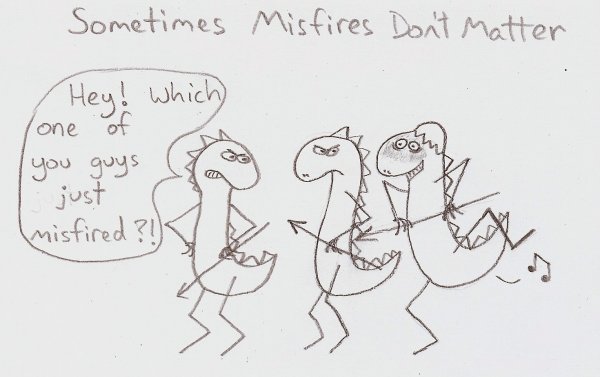 Sometimes Misfires Don't Matter
Hey! Which
one of
you guys
just
misfired?!